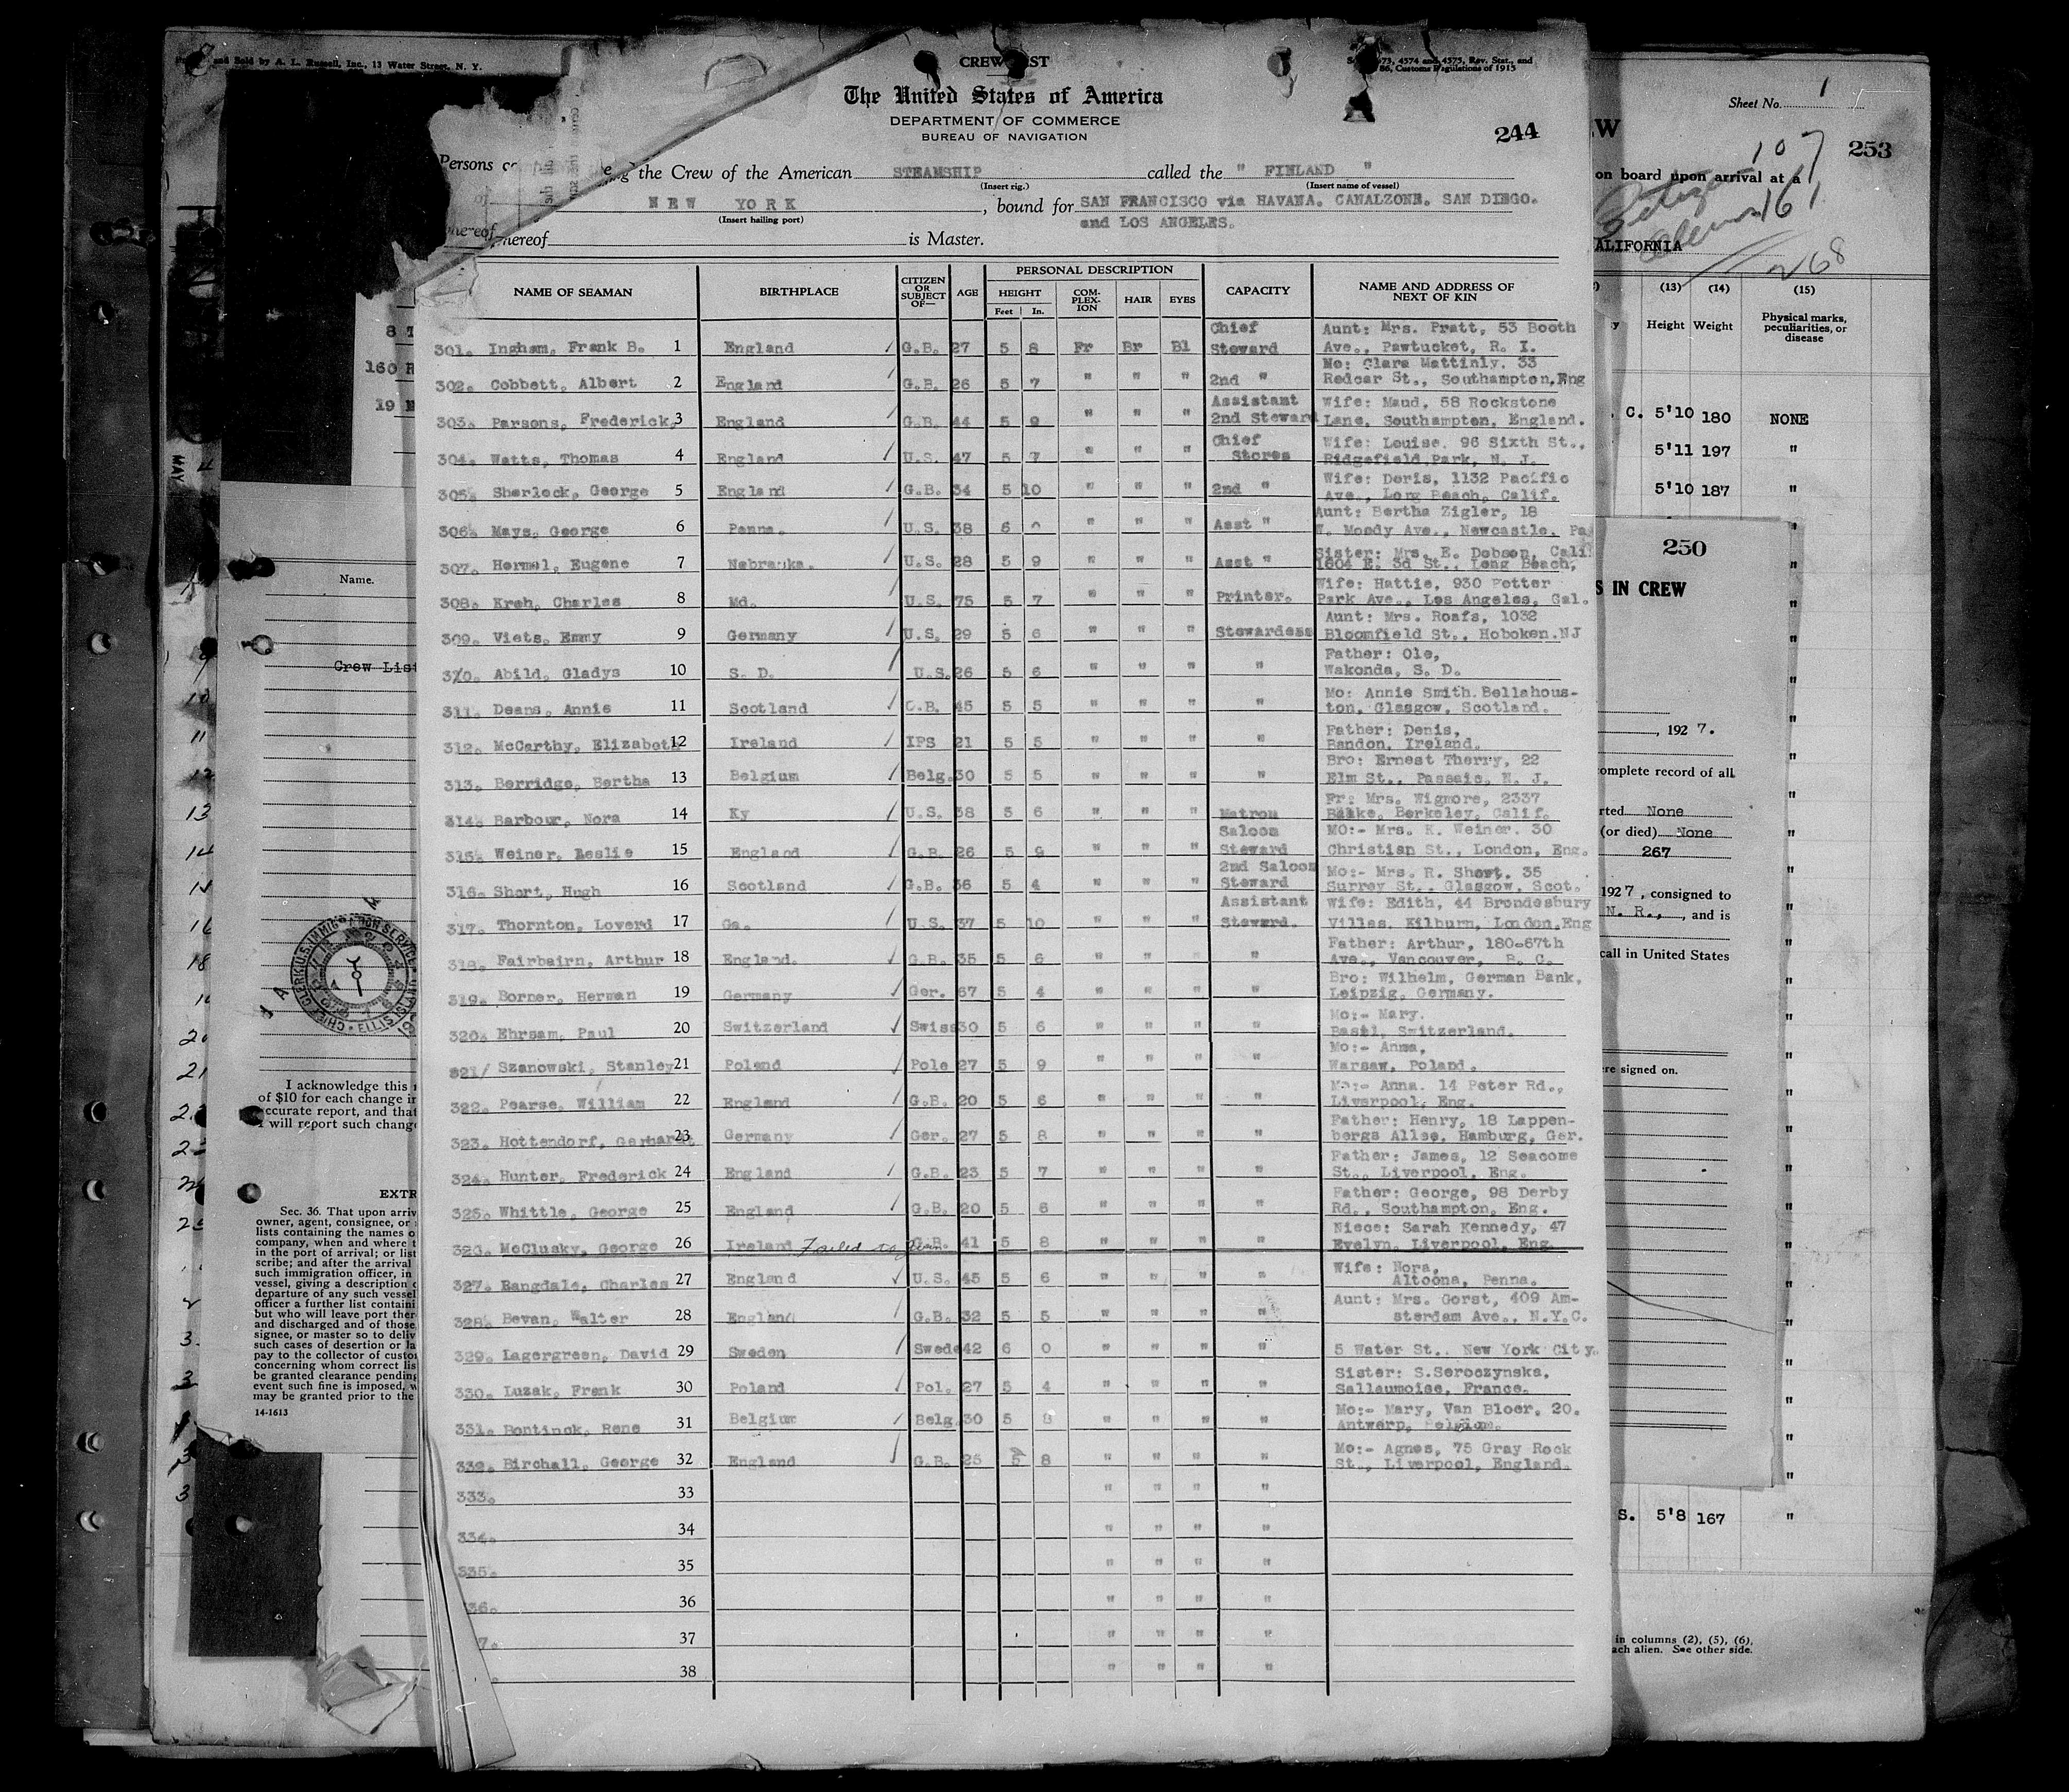 and Sold by A. L. Russell, Inc., 13 Water Street, N. Y.
CREW LIST
73, 4574 and 4575, Rev. Stat., and
86, Customs Regulations of 1915
The United States of America
DEPARTMENT OF COMMERCE
BUREAU OF NAVIGATION
244
Persons the Crew of the American STEAMSHIP called the " FINLAND "
(Insert rig.) (Insert name of vessel)
of NEW YORK, bound for SAN FRANCISCO via HAVANA. CANALZONE. SAN DIEGO.
(Insert hailing port) and LOS ANGELES.
hereof is Master.
NAME OF SEAMAN BIRTHPLACE CITIZEN OR SUBJECT OF— AGE PERSONAL DESCRIPTION CAPACITY NAME AND ADDRESS OF NEXT OF KIN
HEIGHT COM-PLEX-ION HAIR EYES
Feet In.
Chief Aunt: Mrs. Pratt, 53 Booth
301. Ingham, Frank B. 1 England G.B. 27 5 8 Fr Br Bl Steward Ave., Pawtucket, R. I.
Mo: Clara Mattinly. 33
302. Cobbett, Albert 2 England G.B. 26 5 7 " " " 2nd " Redcar St., Southampton,Eng
Assistant Wife: Maud, 58 Rockstone
303. Parsons, Frederick, 3 England G.B. 44 5 9 " " " 2nd Steward Lane, Southampton, England.
Chief Wife: Louise. 96 Sixth St.,
304. Watts, Thomas 4 England U.S. 47 5 7 " " " Stores Ridgefield Park, N. J.
Wife: Doris, 1132 Pacific
305. Sherlock, George 5 England G.B. 34 5 10 " " " 2nd " Ave., Long Beach, Calif.
Aunt: Bertha Zigler, 18
306. Mays, George 6 Penna. U.S. 38 6 0 " " " Asst " W. Moody Ave., Newcastle, Pa
Sister: Mrs. E. Dobson, Calif
307. Hormel, Eugene 7 Nebraska. U.S. 28 5 9 " " " Asst " 1604 E. 3d St., Long Beach,
Wife: Hattie, 930 Potter
308. Kreh, Charles 8 Md. U.S. 75 5 7 " " " Printer. Park Ave., Los Angeles, Cal.
Aunt: Mrs. Roafs, 1032
309. Viets, Emmy 9 Germany U.S. 29 5 6 " " " Stewardess Bloomfield St., Hoboken.NJ
Father: Ole,
310. Abild, Gladys 10 S. D. U.S. 26 5 6 " " " " Wakonda, S. D.
Mo: Annie Smith.Bellahous-
311. Deans, Annie 11 Scotland G.B. 45 5 5 " " " " ton, Glasgow, Scotland.
Father: Denis,
312. McCarthy, Elizabeth 12 Ireland IFS 21 5 5 " " " " Bandon, Ireland.
Bro: Ernest Therry, 22
313. Berridge, Bertha 13 Belgium Belg. 30 5 5 " " " " Elm St., Passaic, N. J.
Fr: Mrs. Wigmore, 2337
314. Barbour, Nora 14 Ky U.S. 38 5 6 " " " Matron Blake, Berkeley, Calif.
Saloon MO:- Mrs. K. Weiner. 30
315. Weiner, Leslie 15 England G.B. 26 5 9 " " " Steward Christian St., London, Eng.
2nd Saloon Mo:- Mrs. R. Short. 35
316. Short, Hugh 16 Scotland G.B. 36 5 4 " " " Steward Surrey St., Glasgow, Scot.
Assistant Wife: Edith, 44 Brondesbury
317. Thornton, Loverd 17 Ga. U.S. 37 5 10 " " " Steward. Villas. Kilburn, London,Eng
Father: Arthur, 180-67th
318. Fairbairn, Arthur 18 England. G.B. 35 5 6 " " " Ave., Vancouver, B. C.
Bro: Wilhelm, German Bank,
319. Borner, Herman 19 Germany Ger. 67 5 4 " " " " Leipzig, Germany.
Mo:- Mary.
320. Ehrsam, Paul 20 Switzerland Swiss 30 5 6 " " " " Basel, Switzerland.
Mo:- Anna,
321 Szanowski, Stanley 21 Poland Pole 27 5 9 " " " " Warsaw, Poland.
Mo:- Anna. 14 Peter Rd.,
322. Pearse, William 22 England G.B. 20 5 6 " " " " Liverpool, Eng.
Father: Henry, 18 Lappen-
323. Hottendorf, Gerhardt 23 Germany Ger. 27 5 8 " " " " bergs Allee, Hamburg, Ger.
Father: James, 12 Seacome
324. Hunter, Frederick 24 England G.B. 23 5 7 " " " " St., Liverpool, Eng.
Father: George, 98 Derby
325. Whittle, George 25 England G.B. 20 5 6 " " " " Rd., Southampton, Eng.
Niece: Sarah Kennedy, 47
326. McClusky, George 26 Ireland Failed to join G.B. 41 5 8 " " " " Evelyn, Liverpool, Eng.
Wife: Nora,
327. Rangdale, Charles 27 England U.S. 45 5 6 " " " " Altoona, Penna.
Aunt: Mrs. Gorst, 409 Am-
328. Bevan, Walter 28 England G.B. 32 5 5 " " " " sterdam Ave., N.Y.C.
329. Lagergreen, David 29 Sweden Swede 42 6 0 " " " " 5 Water St., New York City.
Sister: S.Seroczynska,
330. Luzak, Frank 30 Poland Pol. 27 5 4 " " " " Sallaumoise, France.
Mo:- Mary, Van Bloer, 20.
331. Bontinck, Rene 31 Belgium Belg. 30 5 8 " " " " Antwerp, Belgium.
Mo:- Agnes, 75 Gray Rock
332. Birchall, George 32 England G.B. 25 5 8 " " " " St., Liverpool, England.
333. 33 " " " "
334. 34 " " " "
335. 35 " " " "
36. 36 " " " "
7. 37 " " " "
38 " " " "
Sheet No. 1
253
107
on board upon arrival at a
161
ALIFORNIA
268
(13) (14) (15)
Height Weight Physical marks, peculiarities, or disease
C. 5'10 180 NONE
5'11 197 "
5'10 187 "
250
S IN CREW
, 1927.
complete record of all
rted None
(or died) None
267
1927, consigned to
N. R., and is
call in United States
re signed on.
S. 5'8 167 "
in columns (2), (5), (6),
ach alien. See other side.
8
160
19
MAY
Name.
Crew List
I acknowledge this
of $10 for each change in
accurate report, and that
I will report such change
EXTR
Sec. 36. That upon arriv
owner, agent, consignee, or
lists containing the names o
company, when and where t
in the port of arrival; or list
scribe; and after the arrival
such immigration officer, in
vessel, giving a description o
departure of any such vessel
officer a further list containi
but who will leave port ther
and discharged and of those
signee, or master so to deliv
such cases of desertion or la
pay to the collector of custo
concerning whom correct lis
be granted clearance pending
event such fine is imposed, w
may be granted prior to the
14-1613